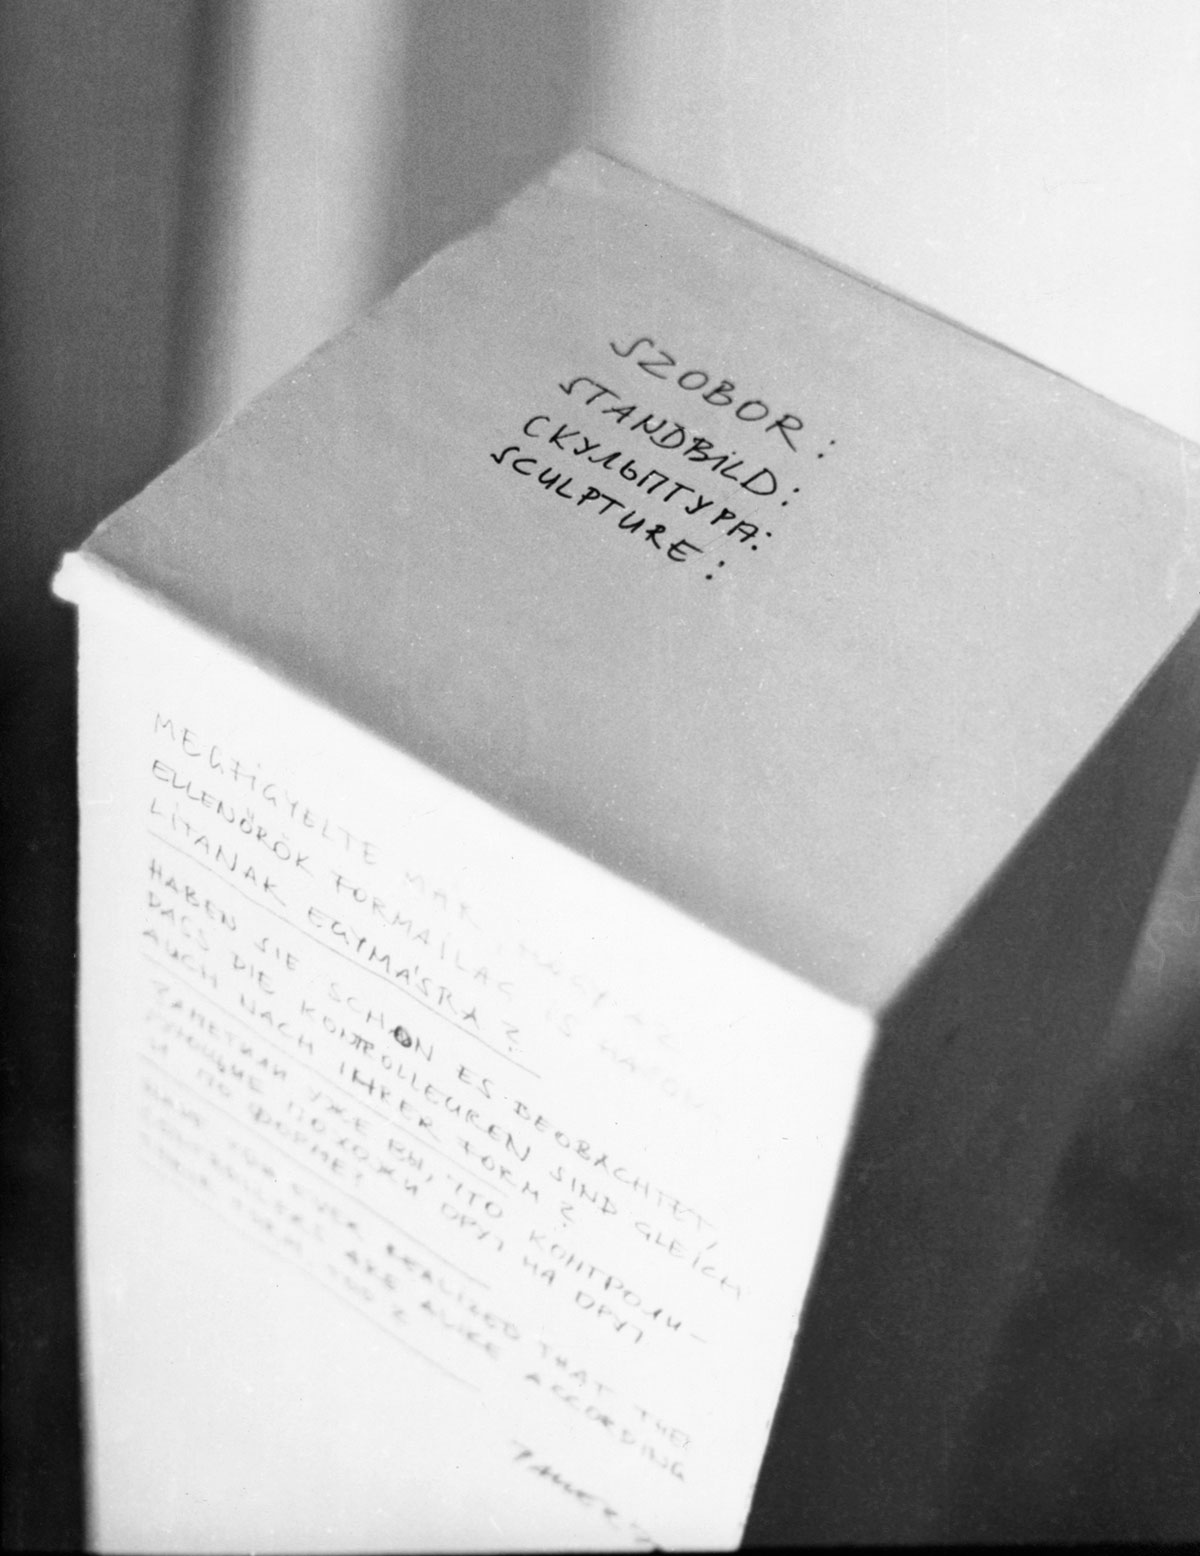 SZOBOR:
STANDBILD:
СКУЛЬПТУРА:
SCULPTURE:
MEGFIGYELTE MÁR, HOGY AZ
ELLENÖRÖK FORMAILAG IS HASON-
LITANAK EGYMÁSRA?
HABEN SIE SCHON ES BEOBACHTET,
DASS DIE KONTROLLEUREN SIND GLEICH
AUCH NACH IHRER FORM?
ЗАМЕТИЛИ УЖЕ ВЫ, ЧТО КОНТРОЛИ-
РУЮЩИЕ ПОХОЖИ ДРУГ НА ДРУГ
И ПО ФОРМЕ?
HAVE YOU EVER REALIZED THAT THE
ARE ALIKE ACCORDING
FORM, TOO?
PAUER